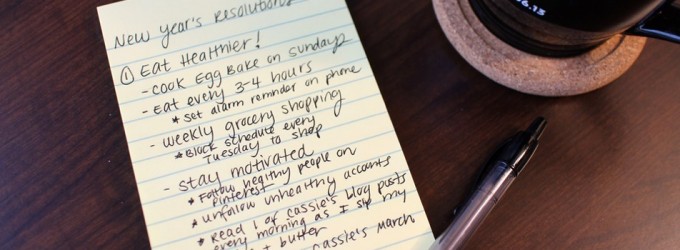 New Year's Resolutions
① Eat Healthier!
- Cook Egg Bake on Sundays
- Eat every 3-4 hours
* Set alarm reminder on phone
- weekly grocery shopping
* Block schedule every
Tuesday to shop
- stay motivated
* Follow healthy people on
pinterest
* unfollow unhealthy accounts
* Read 1 of cassie's blog posts
every morning as I sip my
butter
cassie's March
06.13